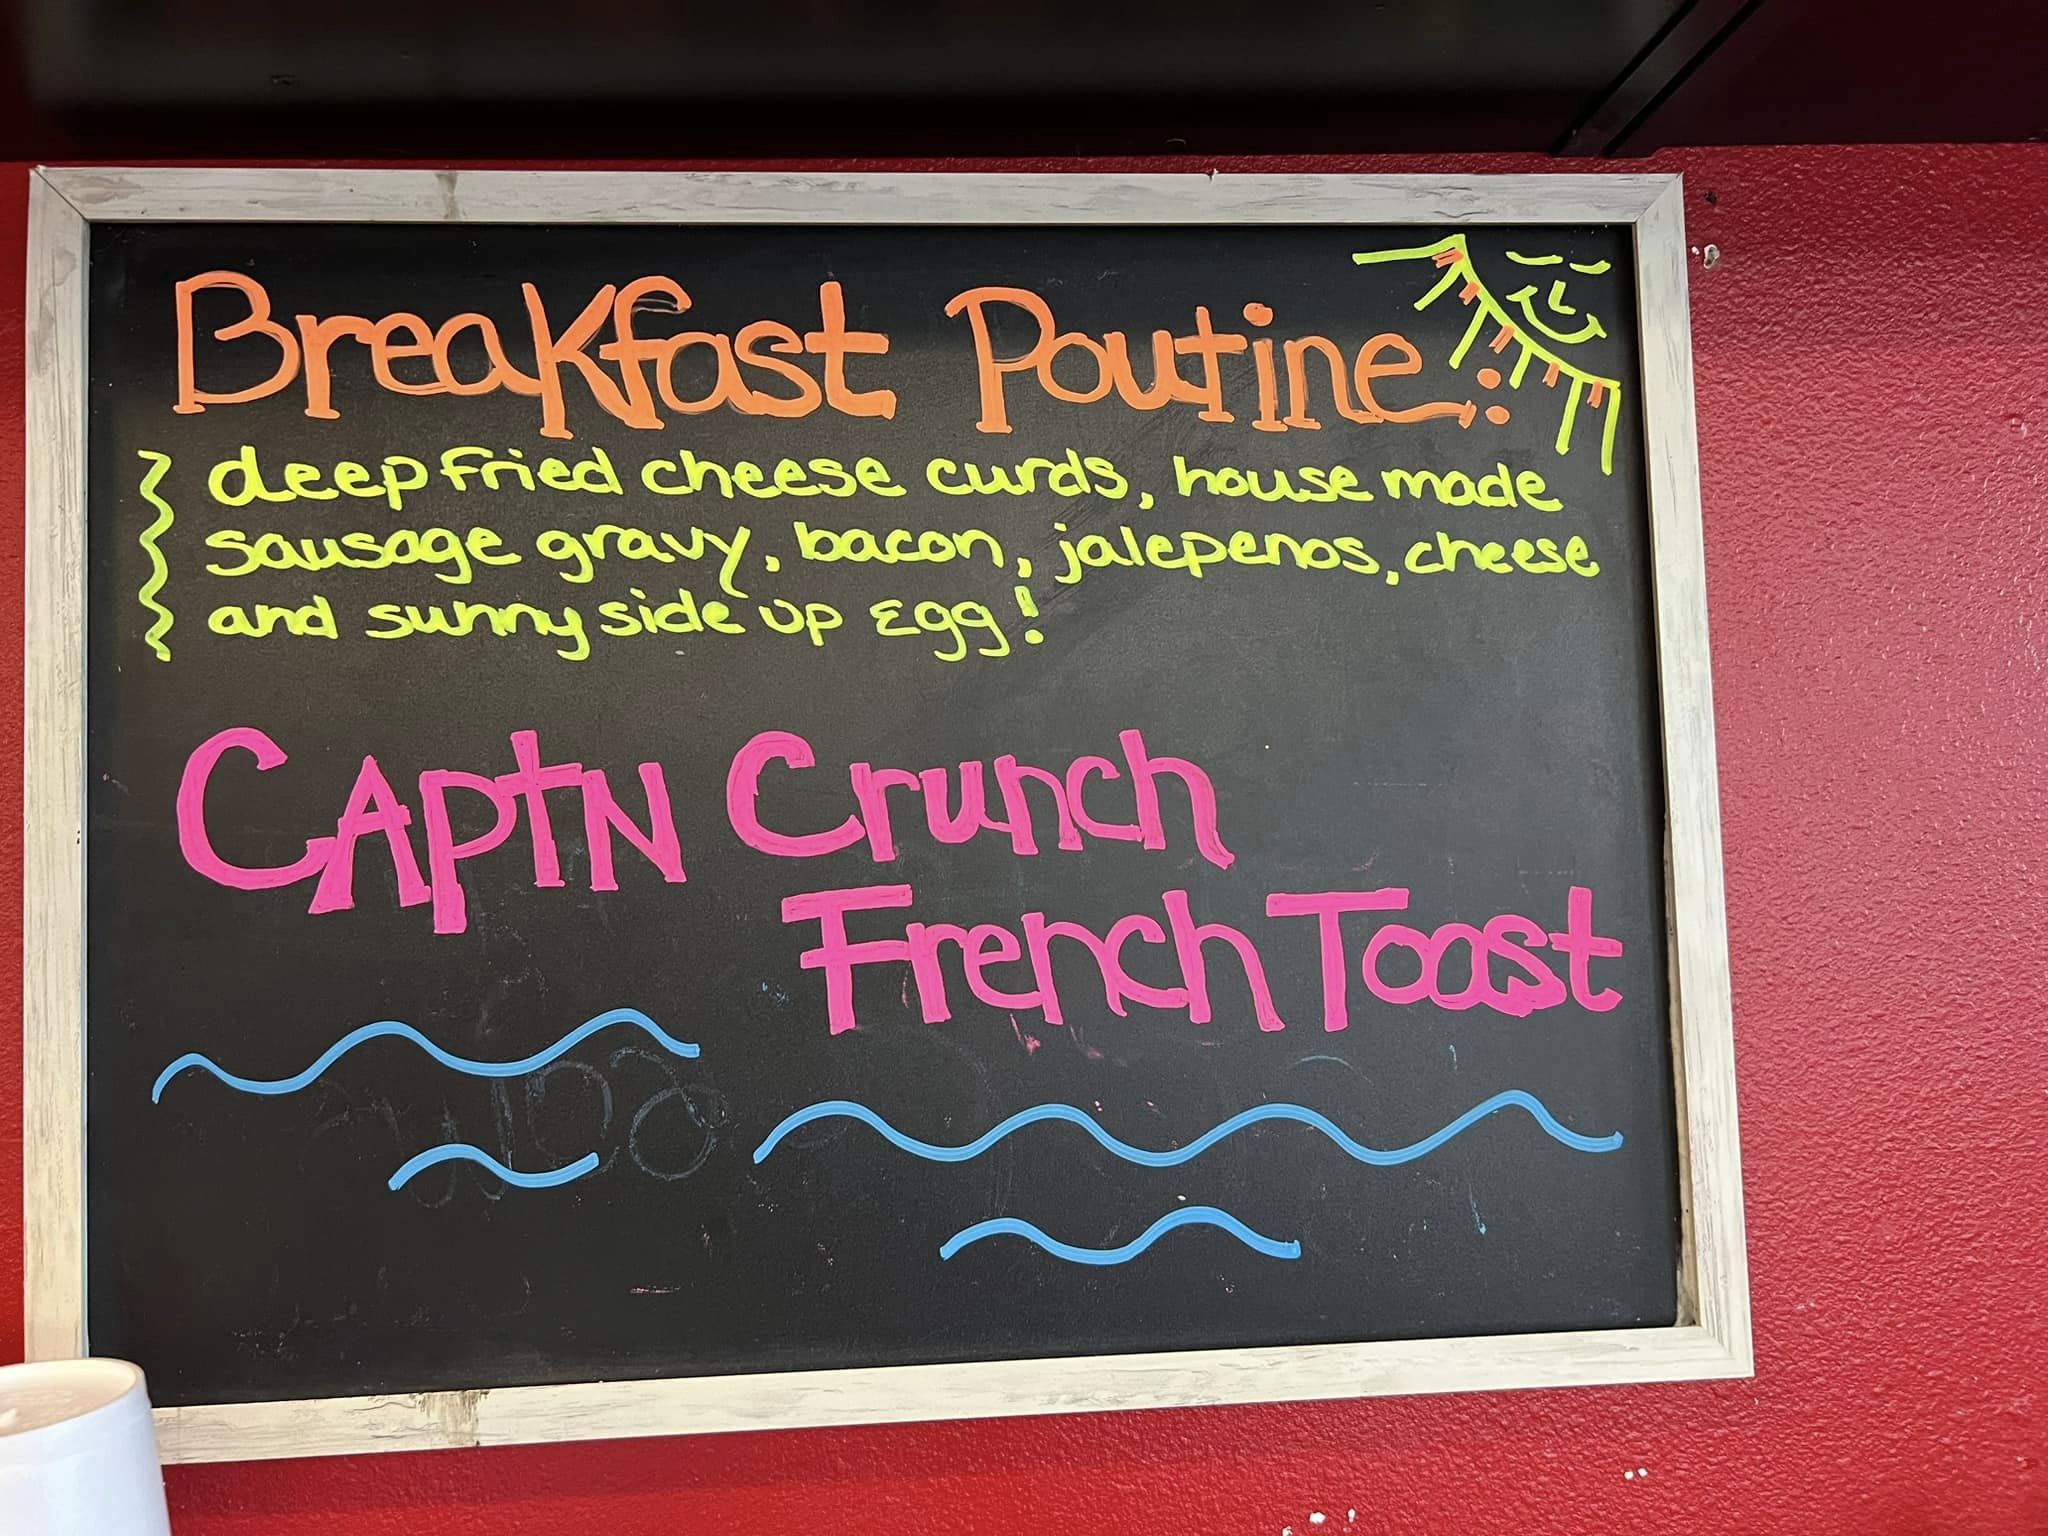 Breakfast Poutine:
deep fried cheese curds, house made
sausage gravy, bacon, jalepenos, cheese
and sunny side up Egg!
CAPtN Crunch
French Toast